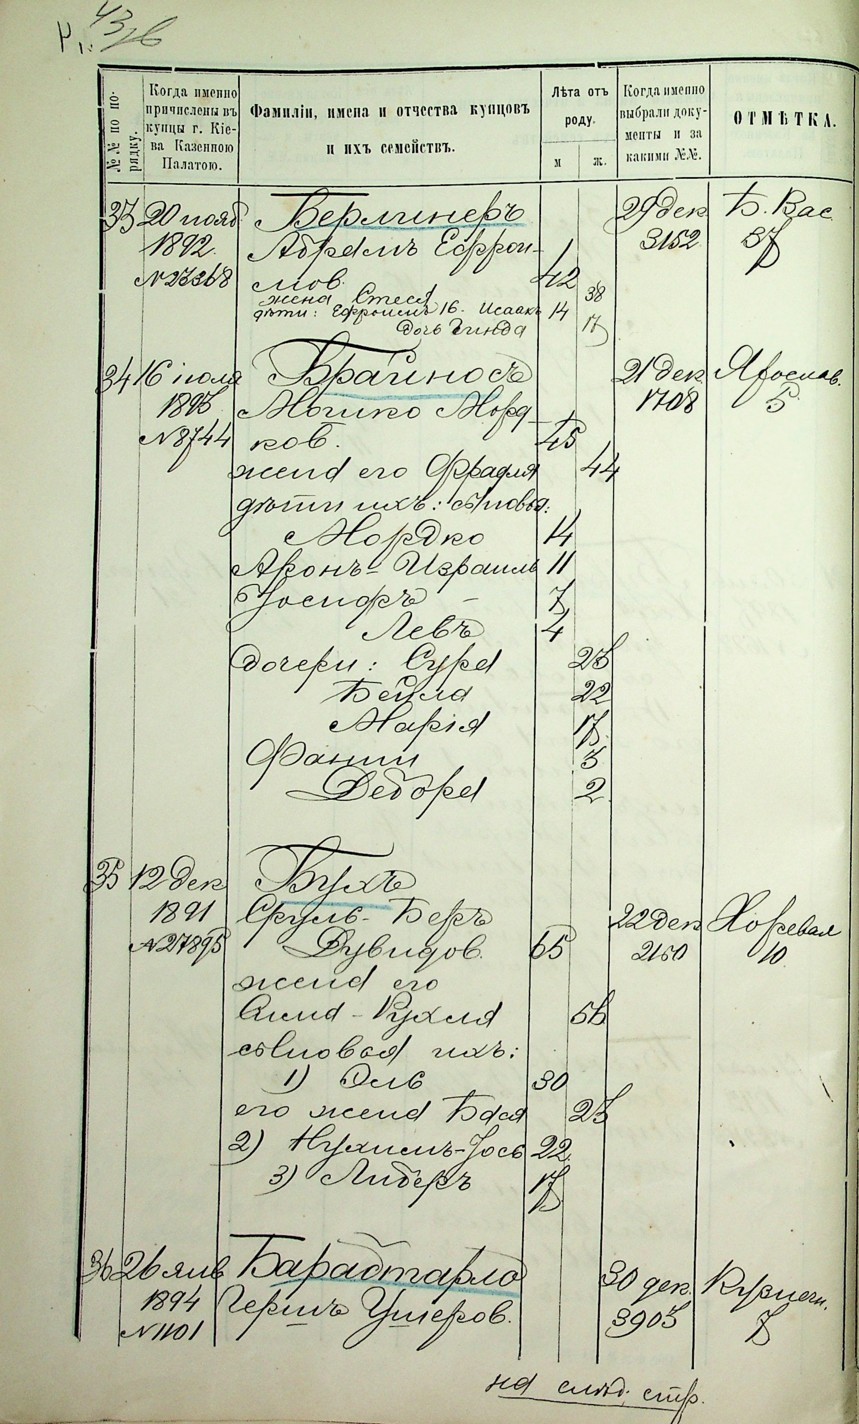 43
№№ по порядку.
Когда именно причислены въ купцы г. Кіева Казенною Палатою.
Фамиліи, имена и отчества купцовъ и ихъ семействъ.
Лѣта отъ роду.
м
ж.
Когда именно выбрали документы и за какими №№.
ОТМѢТКА.
33 20 нояб Берлинеръ 29 дек Б. Вас
1892 Абрамъ Ефрои- 3152 37
N 23368 мов. 42
жена Стеся 38
дѣти: Ефроимъ 16. Исаакъ 14
дочь Гинда 17
34 16 іюля Брайносъ 21 дек Ярослав.
1893 Мошко Морд- 1708 5
N 8744 ков. 45
жена его Фрадля 44
дѣти ихъ: сыновья:
Мордко 14
Аронъ-Израиль 11
Іосифъ - 7
Левъ 4
дочери: Сура 23
Бейла 22
Марія 17
Фанни 3
Дебора 2
35 12 дек Бухъ
1891 Сруль-Беръ 22 дек Хоревая
N 27895 Дувидов. 65 2160 10
жена его
Хана-Рухля 56
сыновья ихъ:
1) Эль 30
его жена Бася 23
2) Нухимъ-Іось 22
3) Либеръ 17
36 26 янв Барабтарло 30 дек. Кузнечн.
1894 Гершъ Ушеров. 3903 7
N 1101
на слѣд. стр.